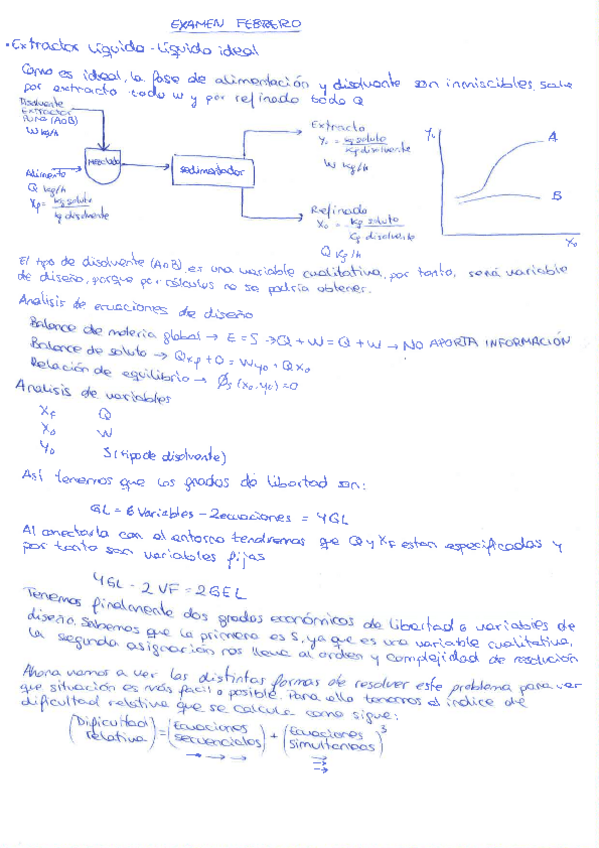 EXAMEN FEBRERO
• Extractor Líquido - Líquido ideal
Como es ideal, la fase de alimentación y disolvente son inmiscibles, sale
por extracto todo W y por refinado todo Q
Disolvente
Extractor
PURO (A o B)
W kg/h
Mezclador
Alimento
Q kg/h
XF = kg soluto
kg disolvente
sedimentador
Extracto
Yo = kg soluto
kg disolvente
W kg/h
Refinado
Xo = kg soluto
kg disolvente
Q kg/h
Yo
A
B
Xo
El tipo de disolvente (A o B), es una variable cualitativa, por tanto, será variable
de diseño, porque por cálculos no se podría obtener.
Analisis de ecuaciones de diseño
Balance de materia global → E = S → Q + W = Q + W → NO APORTA INFORMACIÓN
Balance de soluto → QxF + 0 = Wyo + Qxo
Relación de equilibrio → Øs (xo, yo) = 0
Analisis de variables
XF Q
Xo W
Yo S (tipo de disolvente)
Así tenemos que los grados de libertad son:
GL = 6 variables - 2 ecuaciones = 4GL
Al conectarla con el entorno tendremos que Q y XF estan especificadas y
por tanto son variables fijas
4GL - 2VF = 2GEL
Tenemos finalmente dos grados económicos de libertad o variables de
diseño. Sabemos que la primera es S, ya que es una variable cualitativa,
la segunda asignación nos lleva al orden y complejidad de resolución
Ahora vamos a ver las distintas formas de resolver este problema para ver
que situación es más facil o posible. Para ello tenemos el indice de
dificultad relativa que se calcula como sigue:
(Dificultad relativa) = (Ecuaciones secuenciales) + (Ecuaciones simultaneas)³